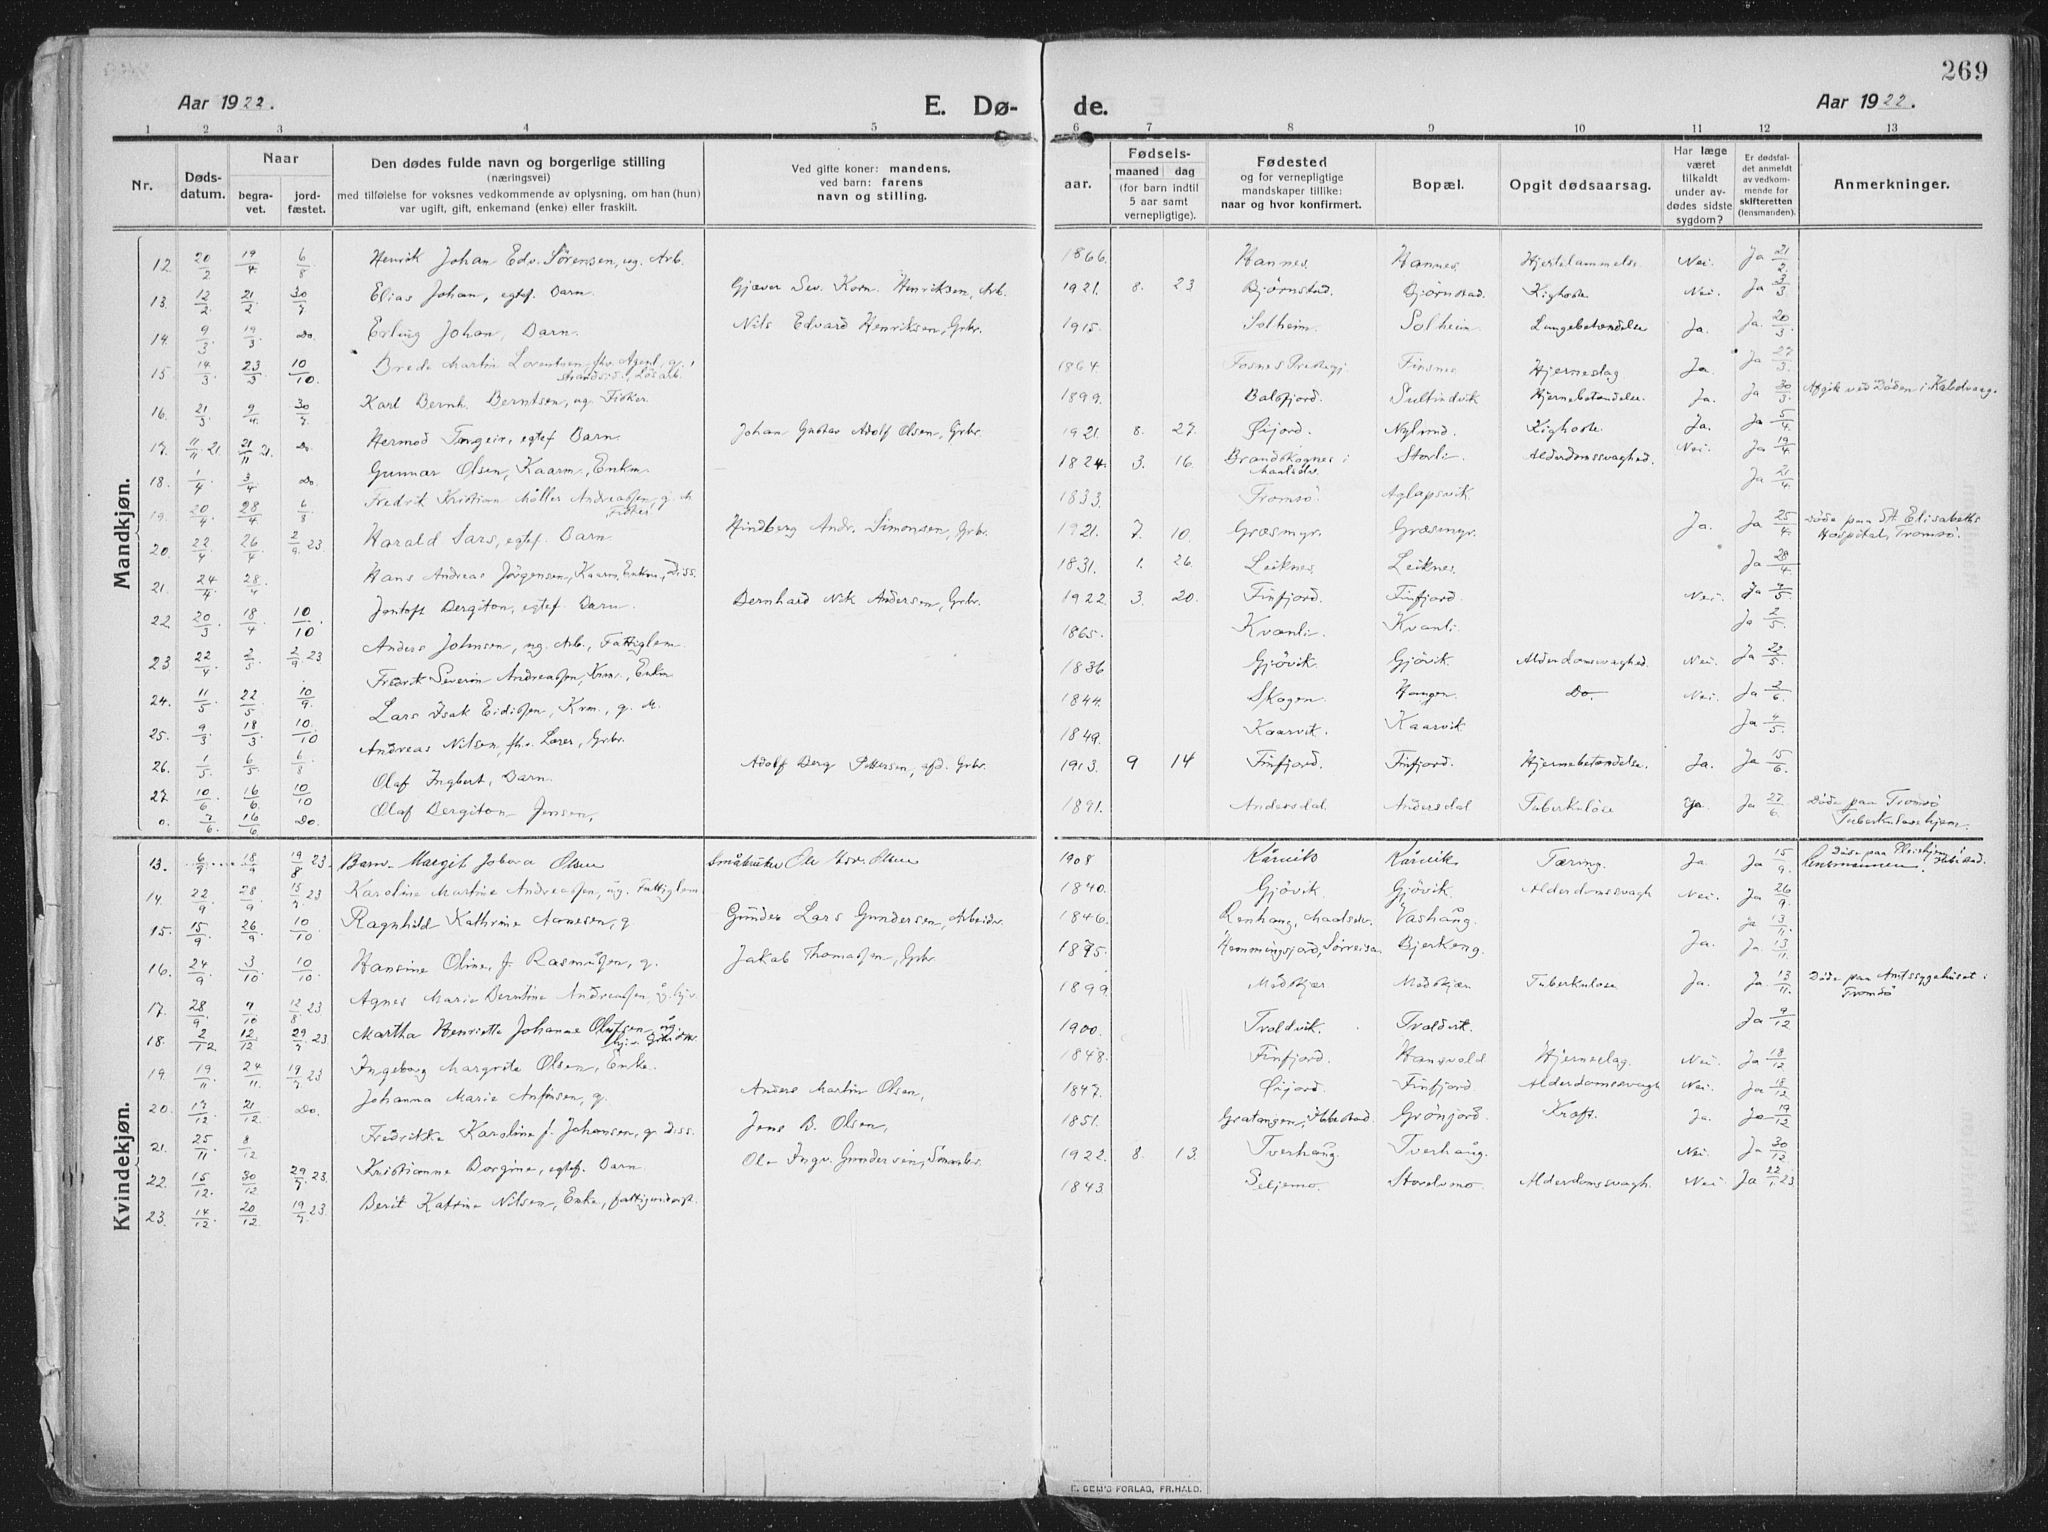 269
Aar 1922. E. Dø- de. Aar 1922.
1 2 3 4 5 6 7 8 9 10 11 12 13
Nr. Dødsdatum. Naar begravet. jordfæstet. Den dødes fulde navn og borgerlige stilling (næringsvei) med tilføielse for voksnes vedkommende av oplysning, om han (hun) var ugift, gift, enkemand (enke) eller fraskilt. Ved gifte koner: mandens, ved barn: farens navn og stilling. Fødsels- aar. maaned dag (for barn indtil 5 aar samt vernepligtige). Fødested og for vernepligtige mandskaper tillike: naar og hvor konfirmert. Bopæl. Opgit dødsaarsag. Har læge været tilkaldt under avdødes sidste sygdom? Er dødsfaldet anmeldt av vedkommende for skifteretten (lensmanden). Anmerkninger.
Mandkjøn.
12. 20/2 19/4 6/8 Henrik Johan Edv. Sörensen, ug. Arb. 1866. Hannes. Hannes. Hjertelammelse Nei. Ja 21/2.
13. 12/2. 21/2 30/7 Elias Johan, egtef. Barn. Gjæver Sev. Korn. Henriksen, Arb. 1921. 8. 23 Bjørnstad. Bjørnstad. Kighoste Nei. Ja 3/3
14. 9/3 19/3. Do. Erling Johan, Barn. Nils Edvard Henriksen, Grbr. 1915. Solheim. Solheim. Lungebetændelse Ja. Ja. 20/3.
15. 14/3. 23/3 10/10. Brede Martin Lorentsen, fhv. Agent, g., strandsid., Løsarb. 1864 Fosnes Prestegj. Finsnes Hjerneslag Ja. Ja 27/3.
16. 21/3. 9/4. 30/7 Karl Bernh. Berntsen, ug. Fisker. 1899. Balsfjord. Sultindvik Hjernebetændelse. Ja. Ja 30/3 Afgik ved Døden i Kaldvaag.
17. 11/11 21. 21/11 21. Do. Hermod Torgeir, egtef. Barn. Johan Gustav Adolf Olsen, Grbr. 1921. 8. 27. Øijord. Nylund. Kighoste. Ja. Ja 5/4.
18. 1/4 3/4 Do Gunnar Olsen, Kaarm, Enkm. 1824. 3. 16. Brandskognes i Maalselv. Storli. Alderdomssvaghed. Nei. Ja 19/4
19. 20/4. 28/4 6/8 Fredrik Kristian Möller Andreassen, g. M. Fisker 1833. Tromsö. Aglapsvik. Ja 21/4.
20. 22/4 26/4. 2/9. 23 Harald Lars, egtef. Barn. Hindberg Andr. Simonsen, Grbr. 1921. 7. 10. Græsmyr. Græsmyr. Ja. Ja 25/4. Døde paa St. Elisabeths Hospital, Tromsö.
21. 24/4. 28/4 Hans Andreas Jörgensen, Kaarm, Enkm, Diss. 1831. 1. 26. Leiknes. Leiknes. Ja 28/4
22. 20/3 18/4 10/10 Jentoft Bergiton, egtef. Barn. Bernhard Nik Andersen, Grbr. 1922. 3. 20. Finfjord. Finfjord. Nei. Ja 4/5.
23. 22/4 2/5. 2/9 23 Anders Johnsen, ug. Arb., Fattiglem. 1865. Kvanli. Kvanli. Ja 2/5.
24. 11/5 22/5 10/9. Fredrik Severin Andreassen, Krm., Enkm 1836 Gjövik. Gjövik. Alderdomsvaghed. Nei. Ja 23/5.
25. 9/3 18/3 10/10 Lars Isak Eidissen, Krm., g. M. 1844. Skogen. Haugen. Do Nei. Ja 2/6.
26. 1/5. 6/5 6/8 Andreas Nilsen, fhv. Lærer, Grbr. 1849. Kaarvik. Kaarvik. Ja 4/5.
27. 10/6 16/6 10/10 Olaf Ingbert, Barn. Adolf Berg Pettersen, afd. Grbr. 1913. 9 14 Finfjord. Finfjord. Hjernebetændelse. Ja. Ja 15/6.
0. 7/6. 16/6 Do. Olaf Bergiton Jensen, 1891. Andersdal. Andersdal Tuberkulose Ja. Ja 27/6. Døde paa Tromsö Tuberkulosehjem.
Kvindekjøn.
13. 6/9 18/9 19/8 23. Barn Margit Jobora Olsen Småbruker Ole Hov. Olsen 1908 Kårvik Kårvik Tæring. Ja. Ja 15/9. Døde paa Pleiehjem Ibbestad. Lensmannen
14. 22/9 28/9. 15/7 23 Karoline Martine Andreassen, ug. Fattiglem 1840. Gjövik Gjövik. Alderdomssvagh Nei. Ja 26/9
15. 15/9. 26/9 10/10 Ragnhild Kathrine Arnesen, g Gunder Lars Gundersen, Arbeider 1846. Renhaug, Maalselv. Vashåug. Ja 13/11.
16. 24/9 3/10 10/10. Hansine Oline, f. Rasmussen, g. Jakob Thomassen, Grbr. 1875. Hemmingsjord, Sörreisa. Bjerkeng. Ja. Ja. 13/11.
17. 28/9. 7/10 12/8 23 Agnes Marie Berntine Andreassen, ug. hjv. 1899. Mödskjær Mödskjær Tuberkulose Ja. Ja. 13/11. Døde paa Amtssygehuset i Tromsö
18. 2/12. 12/12 29/7 23 Martha Henriette Johanne Olufsen, ug. hj. v. Grbdtr. 1900. Troldvik. Troldvik. Ja 9/12
19. 19/11 24/11. 19/7 23 Ingeborg Margrete Olsen, Enke. 1848. Finfjord. Hansvold Hjerneslag Nei. Ja 18/12
20. 17/12. 21/12. Do. Johanna Marie Anfinsen, g. Anders Martin Olsen, 1847. Øijord. Finfjord. Alderdomssvagh Nei. Ja 18/12
21. 25/11. 8/12 Fredrikke Karoline f. Johansen, g. diss. Jens B. Olsen, 1851. Gratangen, Ibbestad. Grönjord. Kræft. Ja. Ja 19/12
22. 15/12. 30/12 29/7. 23. Kristianne Borgine, egtef. Barn. Ole Ingv. Gundersen, Småbr. 1922. 8. 13 Tverhaug. Tverhåug. Nei. Ja 30/12
23. 14/12 20/12. 19/7 23 Berit Katrine Nilsen, Enke, fattigunderst. 1843. Seljemo Storelvmo Alderdomssvagh. Nei Ja 22/1 23
F. BEYER'S FORLAG, FR.HALD.